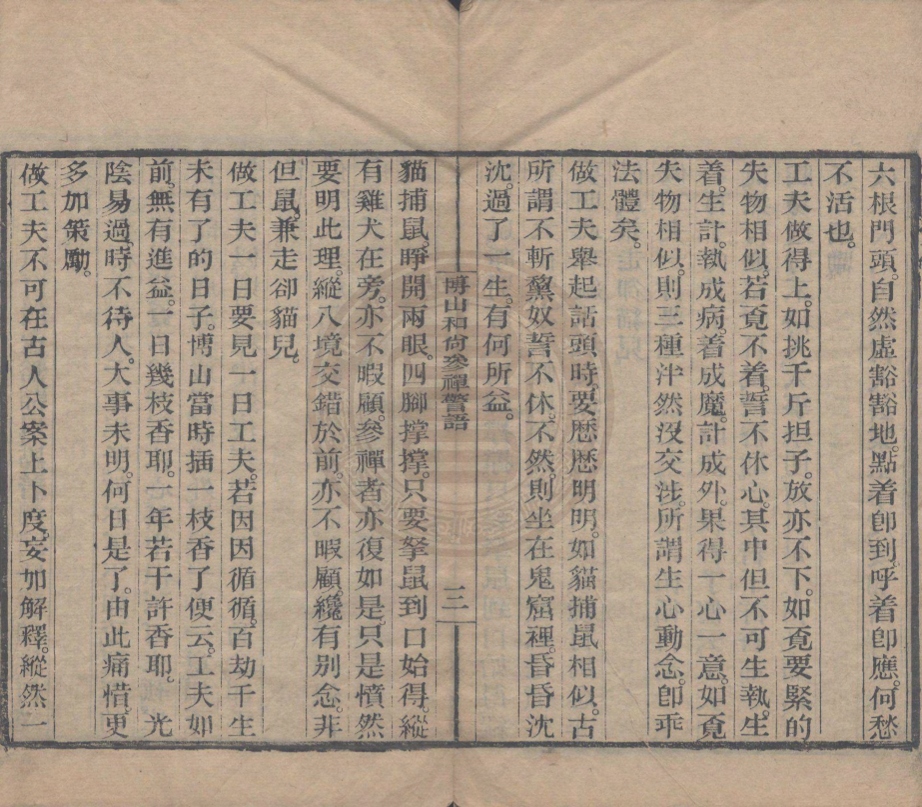 六根門頭。自然虛豁豁地。點着卽到。呼着卽應。何愁
不活也。
工夫做得上。如挑千斤担子。放亦不下。如覔要緊的
失物相似。若覔不着。誓不休心。其中但不可生執。生
着。生計。執成病。着成魔。計成外。果得一心一意。如覔
失物相似。則三種泮然沒交涉。所謂生心動念。卽乖
法體矣。
做工夫舉起話頭時。要歷歷明明。如貓捕鼠相似。古
所謂不斬黧奴誓不休。不然。則坐在鬼窟裡。昏昏沈
沈。過了一生。有何所益。
博山和尙參禪警語
三
貓捕鼠。睜開兩眼。四腳撑撑。只要拏鼠到口始得。縱
有雞犬在旁。亦不暇顧。參禪者亦復如是。只是憤然
要明此理。縱八境交錯於前。亦不暇顧。纔有别念。非
但鼠。兼走卻貓兒。
做工夫一日要見一日工夫。若因因循循。百劫千生
未有了的日子。博山當時插一枝香了。便云。工夫如
前。無有進益。一日幾枝香耶。一年若干許香耶。光
陰易過。時不待人。大事未明。何日是了。由此痛惜。更
多加策勵。
做工夫不可在古人公案上卜度。妄加解釋。縱然一